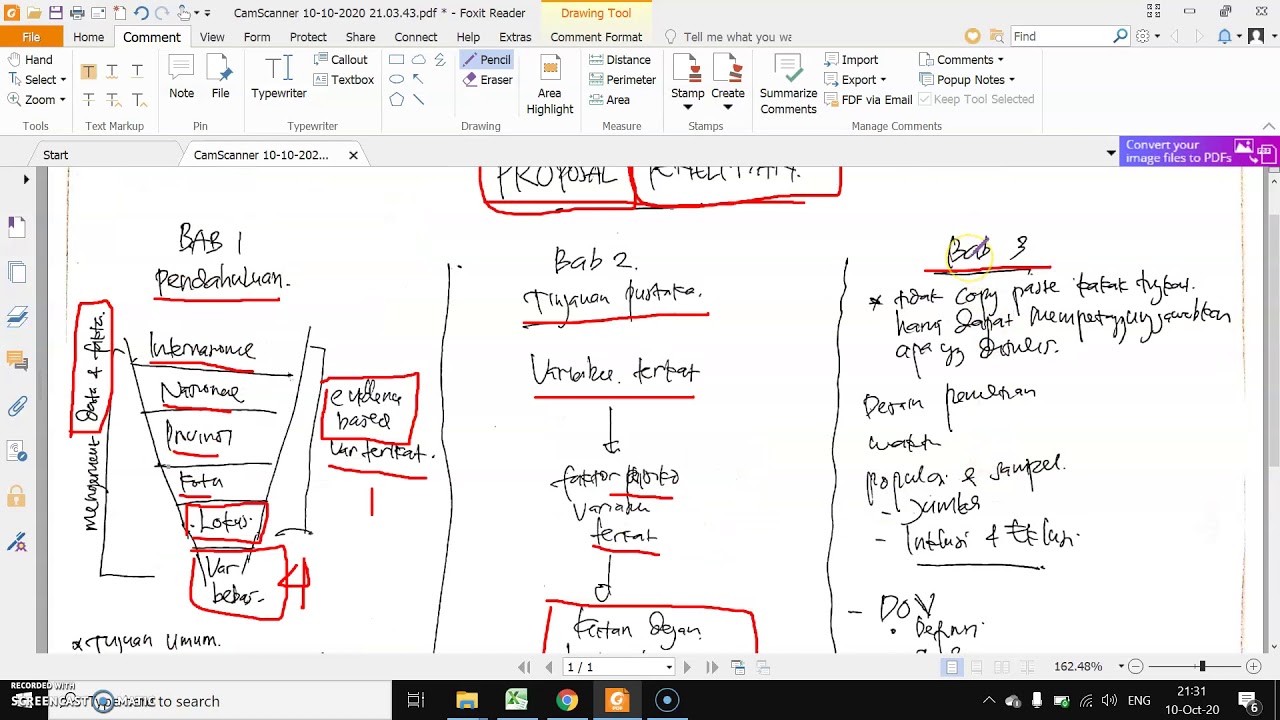 CamScanner 10-10-2020 21.03.43.pdf * - Foxit Reader
Drawing Tool
File Home Comment View Form Protect Share Connect Help Extras Comment Format
Tell me what you wa
Find
Hand
Select
Zoom
Tools
Text Markup
Note
File
Pin
Typewriter
Callout
Textbox
Typewriter
Pencil
Eraser
Drawing
Area
Highlight
Distance
Perimeter
Area
Measure
Stamp
Create
Stamps
Summarize
Comments
Import
Export
FDF via Email
Comments
Popup Notes
Keep Tool Selected
Manage Comments
Start
CamScanner 10-10-202...
Convert your
image files to PDFs
PROPOSAL
BAB 1
Pendahuluan.
Mengerucut data & fakta.
Internasional
Nasional
Provinsi
Kota
Lokus.
Var
bebas.
evidence
based
Var terikat.
* Tujuan Umum.
Bab 2.
Tinjauan pustaka.
Variabel terikat
faktor
Variabel
terikat
Kaitan dengan
Bab 3
* tidak copy paste kakak tingkat.
harus dapat mempertanggungjawabkan
apa yg ditulis.
Desain penelitian
waktu
populasi & sampel.
- Jumlah
- Inklusi & Eksklusi.
- DOV
• Definisi
1 / 1
162.48%
RECORDED WITH
SCREENCAST MATIC
Type here to search
ENG
21:31
10-Oct-20
6